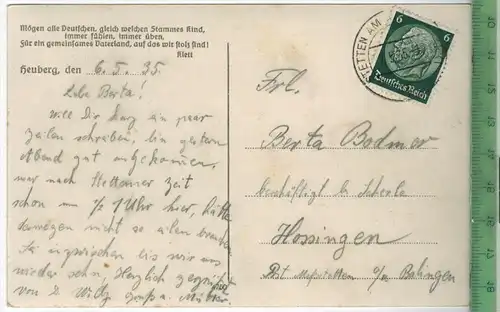 Mögen alle Deutschen, gleich welchen Stammes Kind,
immer fühlen, immer üben,
Für ein gemeinsames Vaterland, auf das wir stolz sind!
Klett
Heuberg, den 6.5.35
Liebe Berta!
will Dir kurz ein paar
zeilen schreiben, bin gestern
Abend gut angekommen,
war nach Stettener Zeit
schon um 1/2 1 Uhr hier, hätte
deswegen nicht so eilen brauchen
inzwischen bis wir uns
wieder sehn, Herzlich gegrüßt
von
STETTEN AM
6
Deutsches Reich
Frl.
Berta Bodmer
beschäftigt b.
Hossingen
Post Meßstetten o/m Balingen